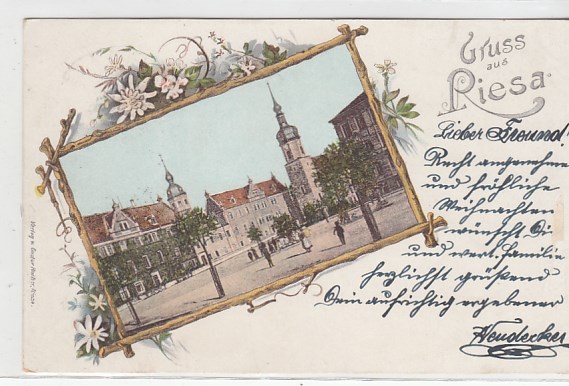 Gruss
aus
Riesa.
Lieber Freund!
Recht angenehme
und fröhliche
Weihnachten
wünscht Di
und wert. Familie
herzlichst grüßend
Dein aufrichtig ergebener
Wendecker
Verlag v.
Riesa.